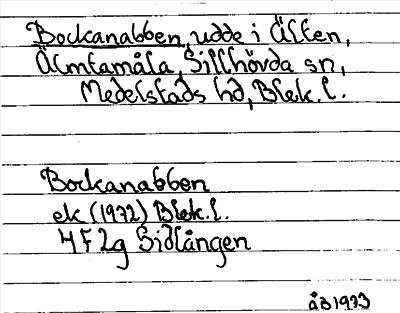 Bockanabben, udde i Älten,
Älmtamåla, Sillhövda sn,
Medelstads hd, Blek. l.
Bockanabben
ek (1972) Blek. l.
4F2g Sidlången
ÅB 1973